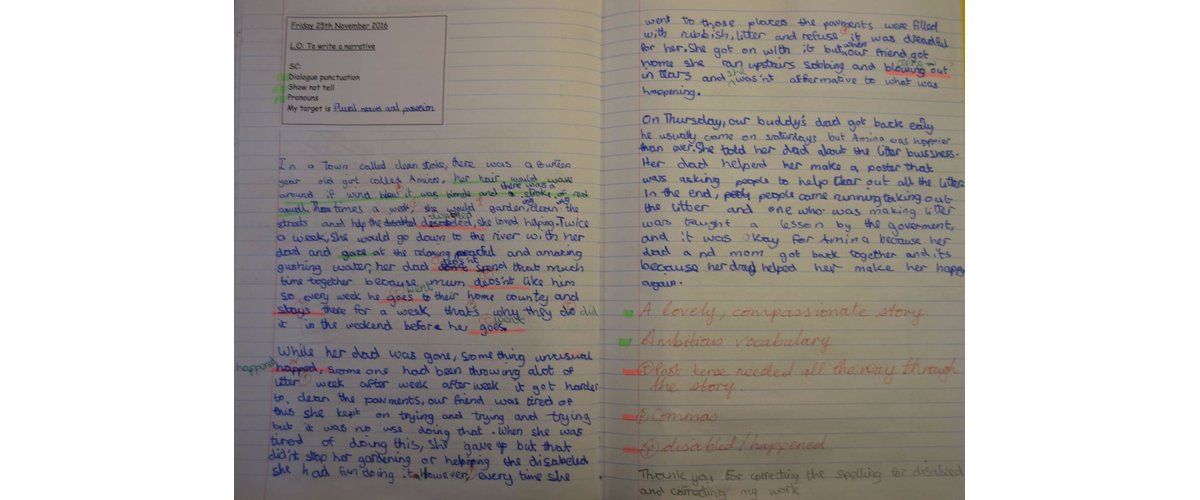 Friday 25th November 2016
L.O: To write a narrative
SC:
Dialogue punctuation
Show not tell
Pronouns
My target is Plural nouns and possesion
In a Town called clean stoke, there was a
year old girl called Amina, her hair would wave
around if wind blew it was blonde and there was a stroke of red
a week, she would gardening, cleaning the
streets and help the disabled, she loved helping. Twice
a week, she would go down to the river with her
dad and gaze at the relaxing peacful and amazing
gushing water, her dad don't does'nt spend that much
time together because mum does'nt like him
so every week he goes went to their home country and
stays there for a week, that's why they do did
it in the weekend before he goes. went
While her dad was gone, something unusual
happened happed, someone had been throwing alot of
litter week after week after week it got harder
to clean the pavments, our friend was tired of
this she kept on trying and trying and trying
but it was no use doing that. When she was
tired of doing this, she gave up but that
did'nt stop her gardening or helping the disabeled
she had fun doing it. However, every time she
went to those places the pavments were filled
with rubbish, litter and refuse it was dreadful
for her. She got on with it but when our friend got
home she ran upstairs sobbing and blowing out
in tears and she was'nt affermative to what was
happening.
On Thursday, our buddy's dad got back ealy
he usually came on saturdays but Amina was happier
than ever. She told her dad about the liter
Her dad helped her make a poster that
was asking people to help Clear out all the litter
In the end, people came running taking out
the litter and one who was making litter
was taught a lesson by the goverment,
and it was Okay for Amina because her
dad and mom got back together and its
because her dad helped her make her happy
again.
A lovely, compassionate story
Ambitious vocabulary
Past tense needed all the way through
the story.
Commas
disabled / happened
Thank you for correcting the spelling for disabled
and correcting my work